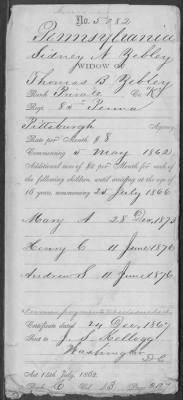 No. 5982
Pennsylvania
Sidney A. Yebley
WIDOW OF
Thomas B. Yebley
Rank Private Co. "K"
Regt 85th Penna
Pittsburgh Agency,
Rate per Month $8
Commencing 5 May 1862
Additional sum of $2 per Month for each of
the following children, until arriving at the age of
16 years, commencing 25 July 1866
Mary A 28 Dec, 1873
Henry C 11 June 1876
Andrew S 11 June 1876
Certificate dated 24 Dec, 1867
Sent to J. S. Kellogg
Washington
D.C
Act 14th July, 1862.
Book C Vol. 13 Page